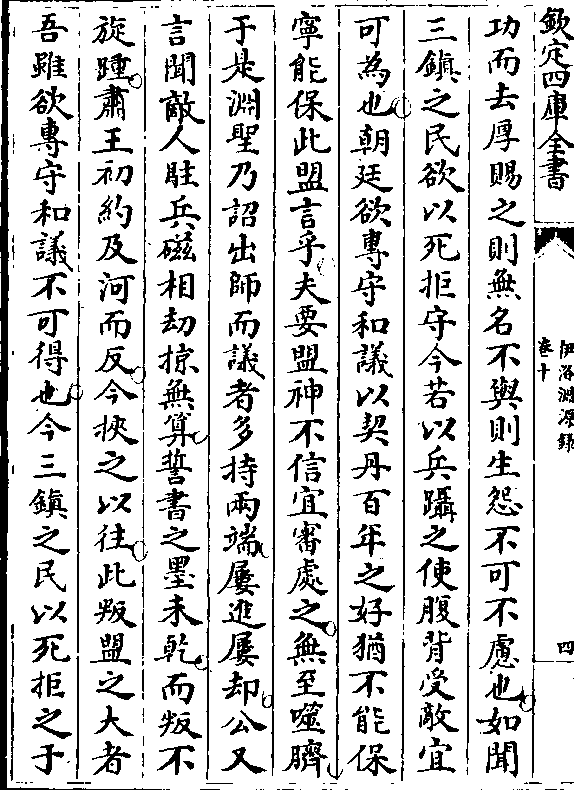 欽定四庫全書
伊洛淵源録
卷十
四
功而去厚賜之則無名不與則生怨不可不慮也如聞
三鎮之民欲以死拒守今若以兵躡之使腹背受敵宜
可為也朝廷欲專守和議以契丹百年之好猶不能保
寧能保此盟言乎夫要盟神不信宜審處之無至噬臍
于是淵聖乃詔出師而議者多持兩端屢進屢却公又
言聞敵人駐兵磁相劫掠無算誓書之墨未乾而叛不
旋踵肅王初約及河而反今挾之以往此叛盟之大者
吾雖欲專守和議不可得也今三鎮之民以死拒之于